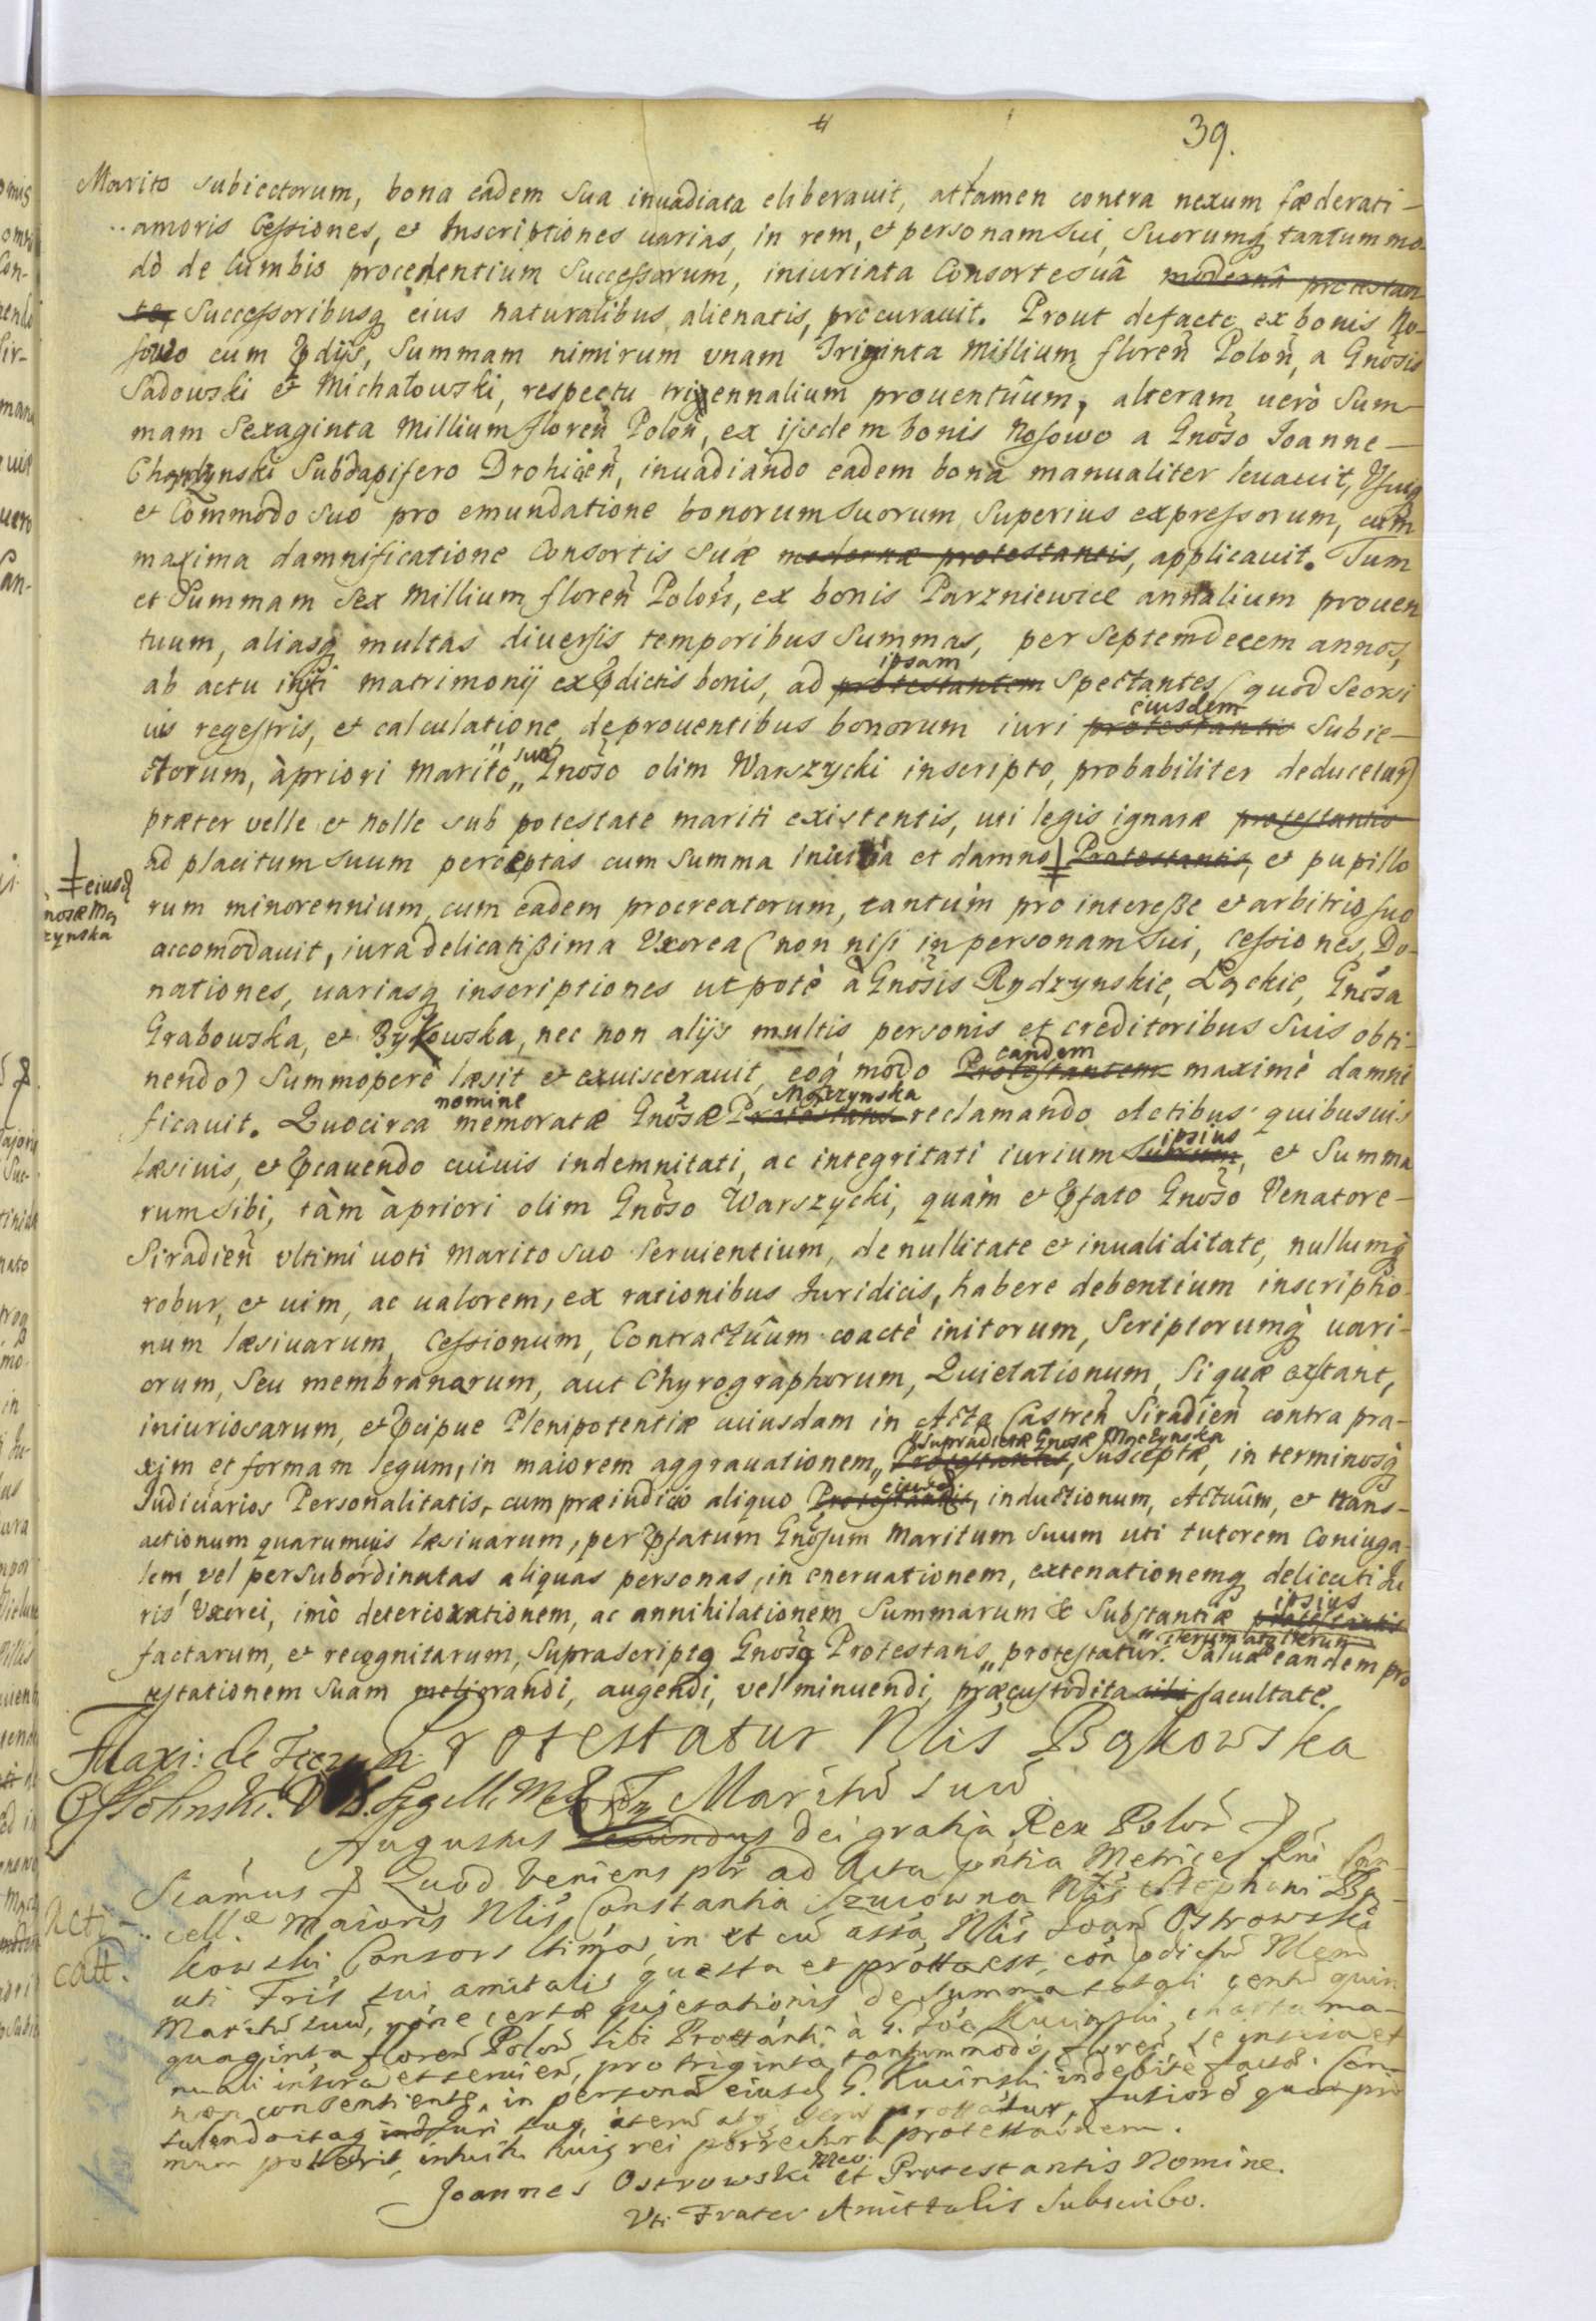 39.
Marito subiectorum, bona eadem sua inuadiata eliberauit, attamen contra nexum fæderati
amoris Cessiones, et Inscriptiones uarias, in rem, et personam sui, suorumq tantummo
dò de lumbis procedentium Successorum, iniuriata Consorte suâ modernâ protestan
te, Successoribusq eius naturalibus alienatis, procurauit. Prout defacto ex bonis No-
sowo cum pdijs, Summam nimirum vnam Triginta Millium floren Polon, a Gnosis
Sadowski et Michałowski, respectu triennalium prouentûum, alteram uerò Sum-
mam Sexaginta Millium floren Polon, ex ijsdem bonis Nosowo a Gnoso Joanne
Subdapifero Drohicien, inuadiando eadem bona manualiter leuauit, Usuiq
et Commodo suo pro emundatione bonorum suorum superius expressorum, cum
maxima damnificatione Consortis suæ modernæ protestantis, applicauit. Tum
et Summam Sex Millium floren Polon, ex bonis Parzniewice annalium prouen
tuum, aliasq multas diuersis temporibus Summas, per Septemdecem annos,
ab actu initi matrimonij ex pdictis bonis, ad protestantem ipsam Spectantes (quod Seorsi
uis regestris, et calculatione de prouentibus bonorum iuri protestantis eiusdem Subie-
ctorum, àpriori Marito „ suo Gnoso olim Warszycki inscripto, probabiliter deducetur)
præter velle et nolle sub potestate mariti existentis, uti legis ignaræ protestantis
ad placitum suum perceptas cum Summa iniuria et damno Protestantis, et pupillo
eiusd Gnosæ Mączynska
rum minorennium, cum eadem procreatorum, tantùm pro interesse et arbitrio suo
accomodauit, iura delicatissima Uxorea (non nisi in personam sui, cessiones, Do-
nationes, uariasq inscriptiones utpotè à Gnosis Rydzynskie, Łąckie, Gnosa
Grabowska, et Bykowska, nec non alijs multis personis et creditoribus suis obti-
nendo) Summoperè læsit et exuiscerauit, eoq modo Protestantem eandem maximè damni
ficauit. Quocirca nomine memoratæ Gnosæ Protestans Mączynska reclamando actibus quibusuis
læsiuis, et præcauendo cuiuis indemnitati, ac integritati iurium suorum ipsius, et Summa
rum sibi, tàm àpriori olim Gnoso Warszycki, quàm et pfato Gnoso Venatore
Siradien vltimi uoti marito suo seruientium, de nullitate et inualiditate, nullumq
robur, et uim, ac ualorem, ex rationibus Iuridicis, habere debentium inscriptio
num læsiuarum, Cessionum, Contractûum coactè initorum, Scriptorumq uari-
orum, seu membranarum, aut Chyrographorum, Quietationum, si quæ extant,
iniuriosarum, et pcipue Plenipotentiæ cuiusdam in Acta Castren Siradien contra pra-
xim et formam legum, in maiorem aggrauationem „ Protestantis supradictæ Gnosæ Mączynska, susceptæ, in terminosq
Iudiciarios Personalitatis, cum præiudicio aliquo Protestantis eiusd, inductionum, Actuûm, et trans-
actionum quarumuis læsiuarum, per pfatum Gnosum maritum suum uti tutorem coniuga-
lem, vel per subordinatas aliquas personas, in eneruationem, extenationemq delicati Iu
ris Uxorei, imò deteriorationem, ac annihilationem Summarum & Substantiæ protestantis ipsius
factarum, et recognitarum, suprascripta Gnosa Protestans „ protestatur „ iterum atq iterum. Salua eandem pro
testationem suam meliorandi, augendi, vel minuendi, præcustodita sibi facultate.
Protestatur Nlis Bąkowska
Marith suu
Maxi: de Tęczyn
Ossolinski
Augustus Secundus Dei gratia Rex Polon
Scamus Quod veniens psr ad Acta pntia Metrices Rni Can-
Acti
catt.
cell Maioris Nlis Constantia Szucowna Nlis Stephani Bą-
kowski Consors ltima, in et cu assa Nlis Joan Ostrowski
uti Fris sui amitalis questa et protta est, con pdictu Nlem
Marith suu, rone certæ quietationis de summa centu quin
quaginta floren Polon sibi Protanti à G. Kucinski, charta ma-
nuali inscra et seruien, pro triginta tantummodo floren, se inscia et
non consentiente, in personam eiusd G. Kucinski indebitè facta
iuri suo, iterum atq iterum
mum poterit, intuitu huius rei porrectura protestationem.
Joannes Ostrowski Meo et Protestantis Nomine.
Uti Frater Amittalis Subscribo.